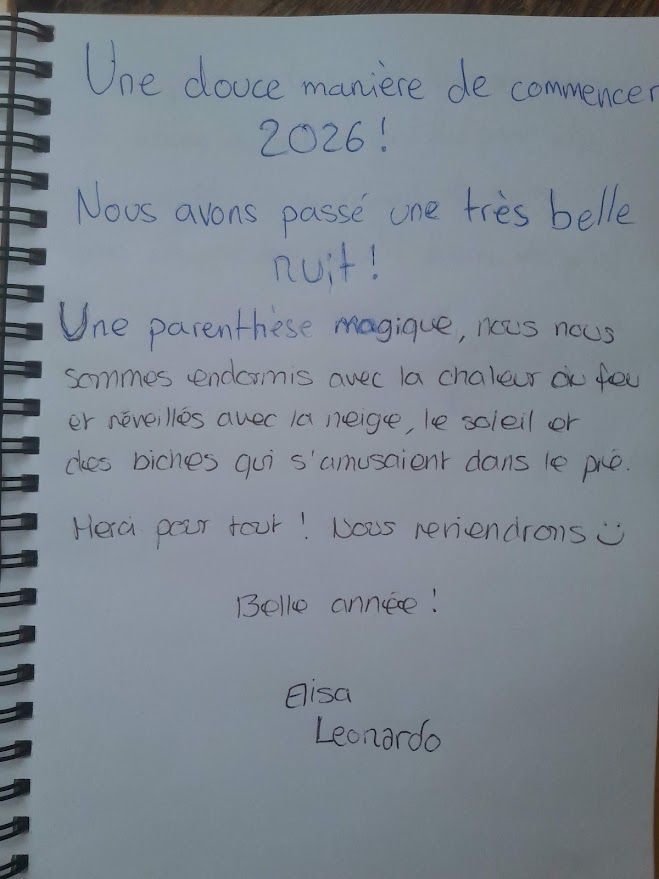 Une douce manière de commencer
2026 !
Nous avons passé une très belle
nuit !
Une parenthèse magique, nous nous
sommes endormis avec la chaleur du feu
et réveillés avec la neige, le soleil et
des biches qui s'amusaient dans le pré.
Merci pour tout ! Nous reviendrons
Belle année !
Elisa
Leonardo